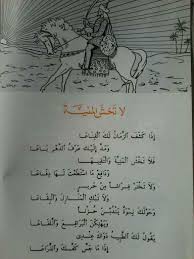 لا تَخْشَ المَنِيَّةَ
إِذَا كَشَفَ الزَّمَانُ لَكَ القِنَاعَا
وَمَدَّ إِلَيْكَ صَرْفُ الدَّهْرِ بَاعَا
فَلَا تَخْشَ المَنِيَّةَ وَالْقَيَنْهَا
وَدَافِعْ مَا اسْتَطَعْتَ لَهَا دِفَاعَا
وَلَا تَخْتَرْ فِرَاشًا مِنْ حَرِيرٍ
وَلَا تَبْكِ المَنَازِلَ وَالبِقَاعَا
وَحَوْلَكَ نِسْوَةٌ يَنْدُبْنَ حُزْنًا
وَيَهْتِكْنَ البَرَاقِعَ وَاللِّفَاعَا
يَقُولُ لَكَ الطَّبِيبُ دَوَاكَ عِنْدِي
إِذَا مَا جَسَّ كَفَّكَ وَالذِّرَاعَا